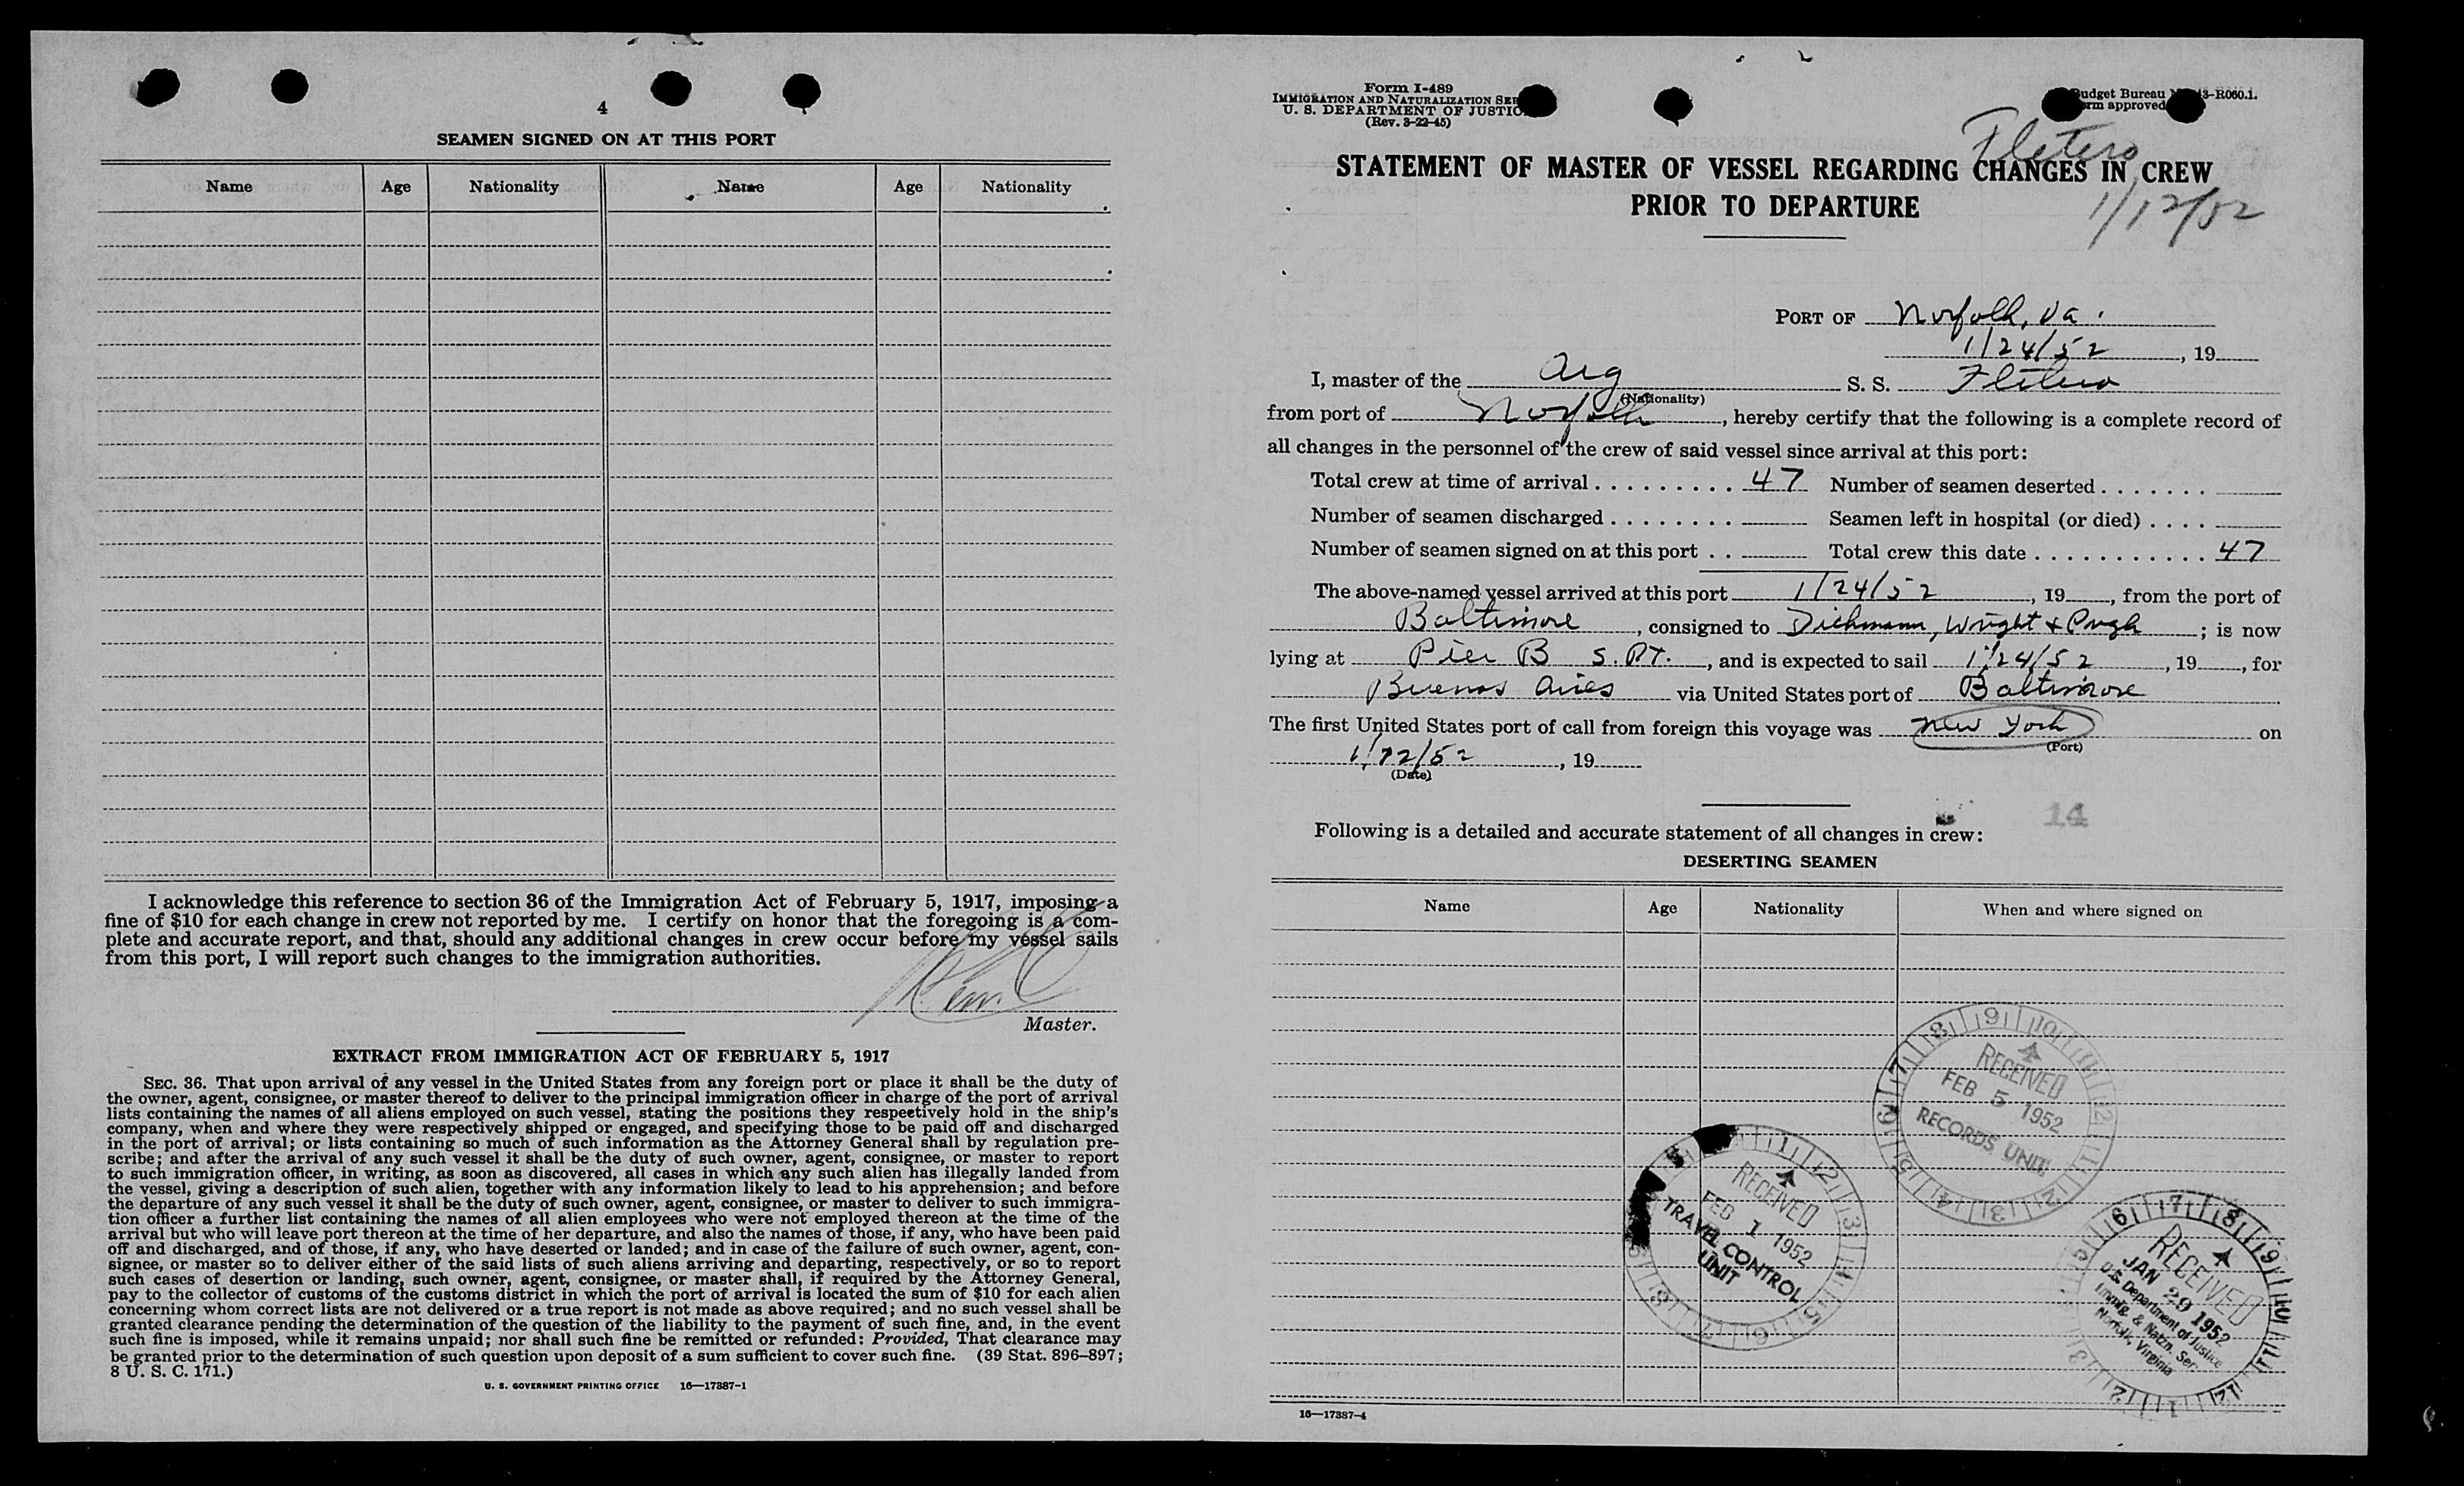 4
SEAMEN SIGNED ON AT THIS PORT
Name Age Nationality Name Age Nationality
I acknowledge this reference to section 36 of the Immigration Act of February 5, 1917, imposing a
fine of $10 for each change in crew not reported by me. I certify on honor that the foregoing is a com-
plete and accurate report, and that, should any additional changes in crew occur before my vessel sails
from this port, I will report such changes to the immigration authorities.
Master.
EXTRACT FROM IMMIGRATION ACT OF FEBRUARY 5, 1917
SEC. 36. That upon arrival of any vessel in the United States from any foreign port or place it shall be the duty of
the owner, agent, consignee, or master thereof to deliver to the principal immigration officer in charge of the port of arrival
lists containing the names of all aliens employed on such vessel, stating the positions they respectively hold in the ship's
company, when and where they were respectively shipped or engaged, and specifying those to be paid off and discharged
in the port of arrival; or lists containing so much of such information as the Attorney General shall by regulation pre-
scribe; and after the arrival of any such vessel it shall be the duty of such owner, agent, consignee, or master to report
to such immigration officer, in writing, as soon as discovered, all cases in which any such alien has illegally landed from
the vessel, giving a description of such alien, together with any information likely to lead to his apprehension; and before
the departure of any such vessel it shall be the duty of such owner, agent, consignee, or master to deliver to such immigra-
tion officer a further list containing the names of all alien employees who were not employed thereon at the time of the
arrival but who will leave port thereon at the time of her departure, and also the names of those, if any, who have been paid
off and discharged, and of those, if any, who have deserted or landed; and in case of the failure of such owner, agent, con-
signee, or master so to deliver either of the said lists of such aliens arriving and departing, respectively, or so to report
such cases of desertion or landing, such owner, agent, consignee, or master shall, if required by the Attorney General,
pay to the collector of customs of the customs district in which the port of arrival is located the sum of $10 for each alien
concerning whom correct lists are not delivered or a true report is not made as above required; and no such vessel shall be
granted clearance pending the determination of the question of the liability to the payment of such fine, and, in the event
such fine is imposed, while it remains unpaid; nor shall such fine be remitted or refunded: Provided, That clearance may
be granted prior to the determination of such question upon deposit of a sum sufficient to cover such fine. (39 Stat. 896–897;
8 U. S. C. 171.)
U. S. GOVERNMENT PRINTING OFFICE 16—17387-1
Form I-489
IMMIGRATION AND NATURALIZATION SER
U. S. DEPARTMENT OF JUSTIC
(Rev. 3-22-45)
udget Bureau 43-R060.1.
rm approved
Fletero
STATEMENT OF MASTER OF VESSEL REGARDING CHANGES IN CREW
PRIOR TO DEPARTURE
1/12/52
PORT OF Norfolk, Va.
1/24/52, 19
I, master of the Arg S. S. Fletero
(Nationality)
from port of Norfolk, hereby certify that the following is a complete record of
all changes in the personnel of the crew of said vessel since arrival at this port:
Total crew at time of arrival 47 Number of seamen deserted
Number of seamen discharged Seamen left in hospital (or died)
Number of seamen signed on at this port Total crew this date 47
The above-named vessel arrived at this port 1/24/52, 19, from the port of
Baltimore, consigned to Dichmann, Wright & Pugh; is now
lying at Pier B S. Pt., and is expected to sail 1/24/52, 19, for
Buenos Aires via United States port of Baltimore
The first United States port of call from foreign this voyage was New York on
(Port)
1/12/52, 19
(Date)
14
Following is a detailed and accurate statement of all changes in crew:
DESERTING SEAMEN
Name Age Nationality When and where signed on
RECEIVED
FEB 5 1952
RECORDS UNIT
RECEIVED
FEB 1 1952
TRAVEL CONTROL
UNIT
RECEIVED
JAN 29 1952
U.S. Department of Justice
Immig. & Natzn. Ser.
Norfolk, Virginia
16—17387-4